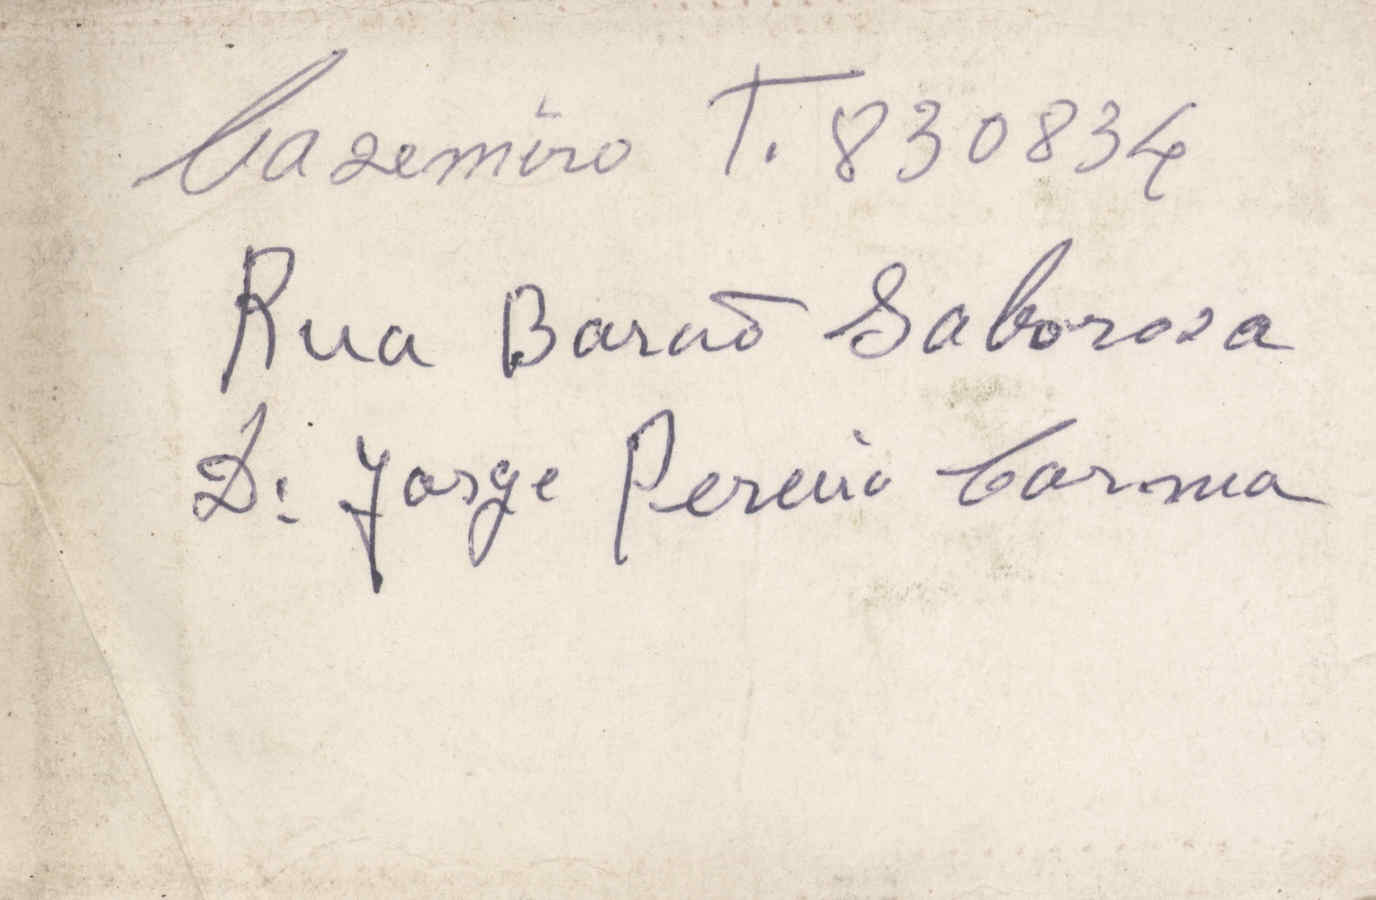 Cazemiro T. 830834
Rua Barão Saboroza
Dr Jorge Pereira Carma